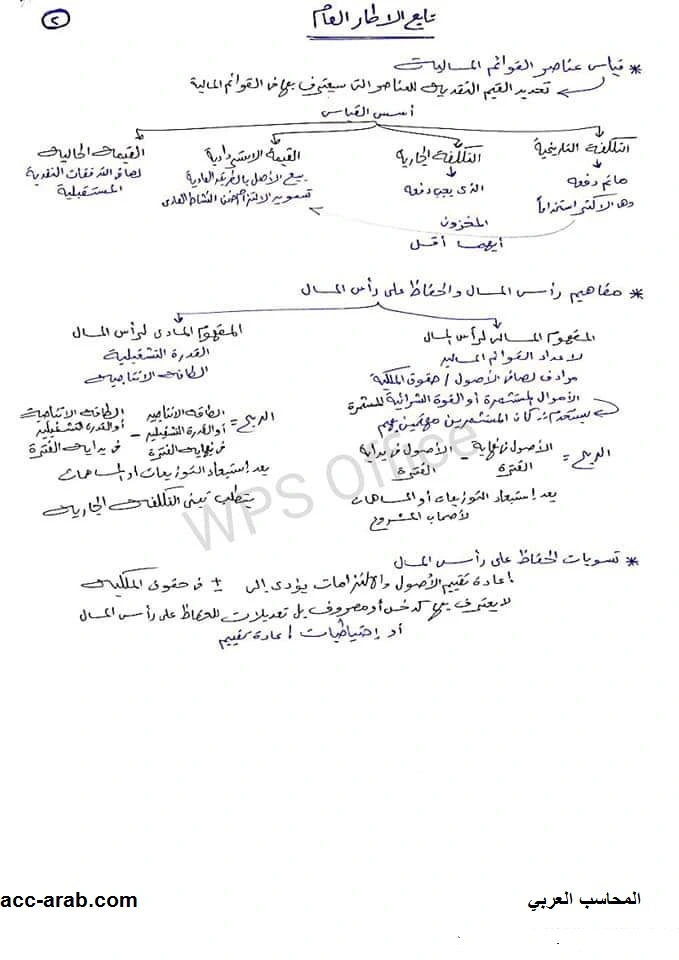 ٢
تابع الاطار العام
* قياس عناصر القوائم المالية
تحديد القيم النقدية للعناصر التى سيعترف بها فى القوائم المالية
أسس القياس
التكلفة التاريخية
ماتم دفعه
وهى الاكثر استخداماً
التكلفة الجارية
الذى يجب دفعه
المخزون
أيهما أقل
القيمة الاستردادية
بيع الأصل بالطريقة العادية
تسوية الالتزام ضمن النشاط العادى
القيمة الحالية
لصافى التدفقات النقدية
المستقبلية
* مفاهيم رأس المال والحفاظ على رأس المال
المفهوم المالى لرأس المال
لاعداد القوائم المالية
مرادف لصافى الأصول / حقوق الملكية
الأموال المستثمرة أو القوة الشرائية المستثمرة
يستخدم إذا كان المستثمرين مهتمين بهم
الربح = الأصول فى نهاية الفترة - الأصول فى بداية الفترة
بعد إستبعاد التوزيعات أو المساهمات
لأصحاب المشروع
المفهوم المادى لرأس المال
القدرة التشغيلية
الطاقة الانتاجية
الربح = الطاقة الانتاجية أو القدرة التشغيلية فى نهاية الفترة - الطاقة الانتاجية أو القدرة التشغيلية فى بداية الفترة
بعد إستبعاد التوزيعات أو المساهمات
يتطلب تبنى التكلفة الجارية
* تسويات الحفاظ على رأس المال
إعادة تقييم الأصول والالتزامات يؤدى إلى ± فى حقوق الملكية
لايعترف بهم كدخل أو مصروف بل تعديلات للحفاظ على رأس المال
أو إحتياطيات إعادة تقييم
WPS Office
المحاسب العربي
acc-arab.com